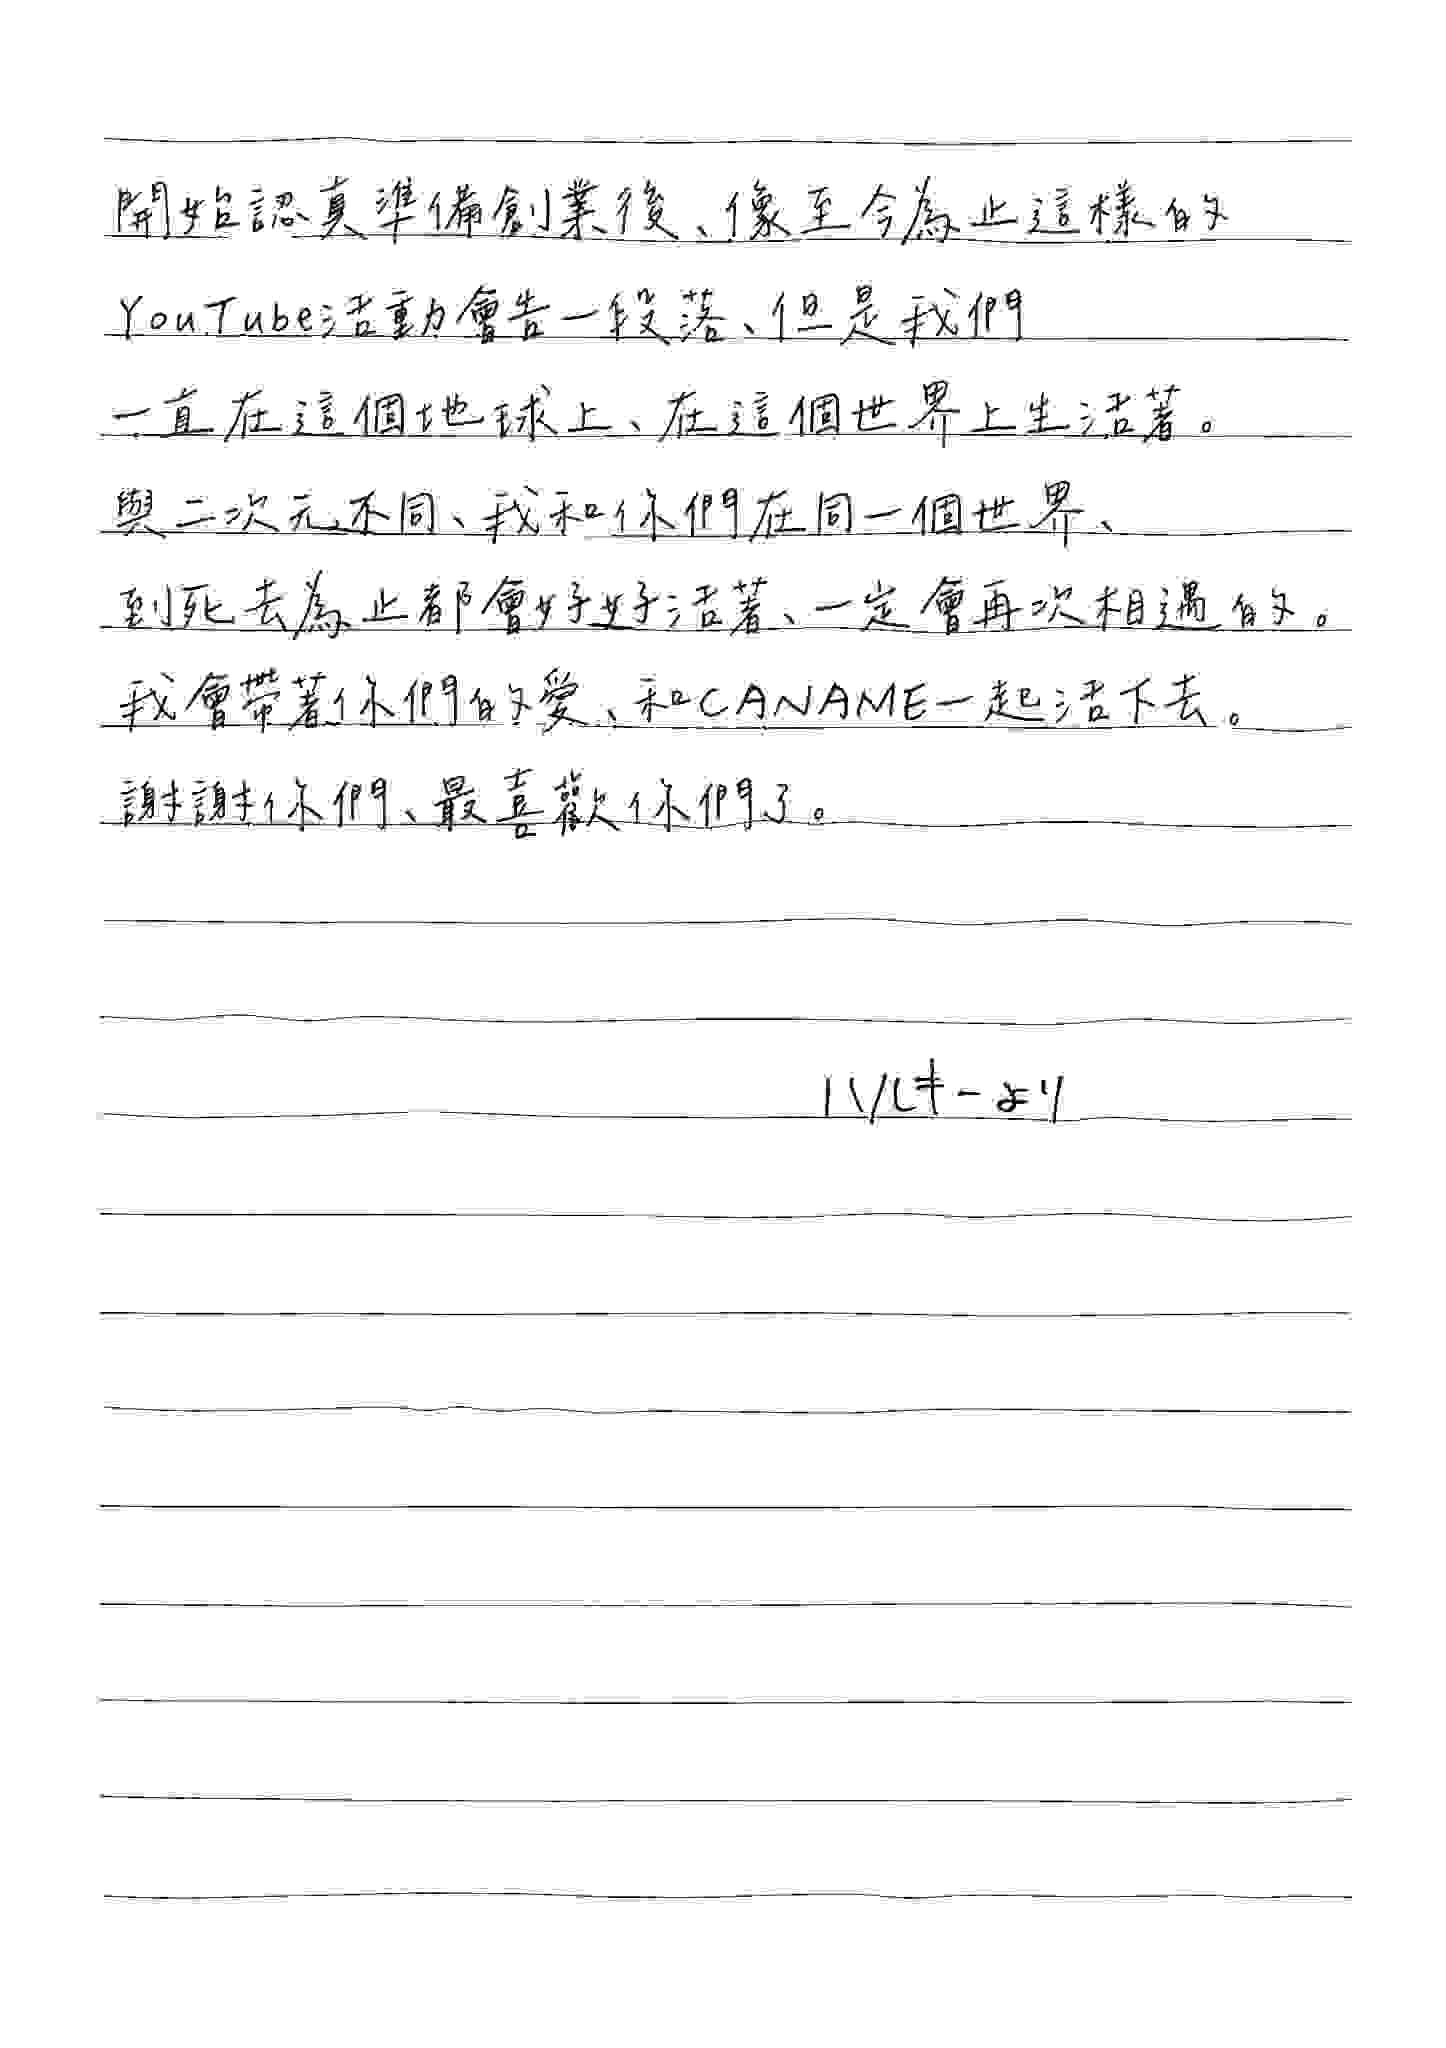 開始認真準備創業後、像至今為止這樣的
YouTube活動會告一段落、但是我們
一直在這個地球上、在這個世界上生活著。
與二次元不同、我和你們在同一個世界、
到死去為止都會好好活著、一定會再次相遇的。
我會帶著你們的愛、和CANAME一起活下去。
謝謝你們、最喜歡你們了。
ハルキーより